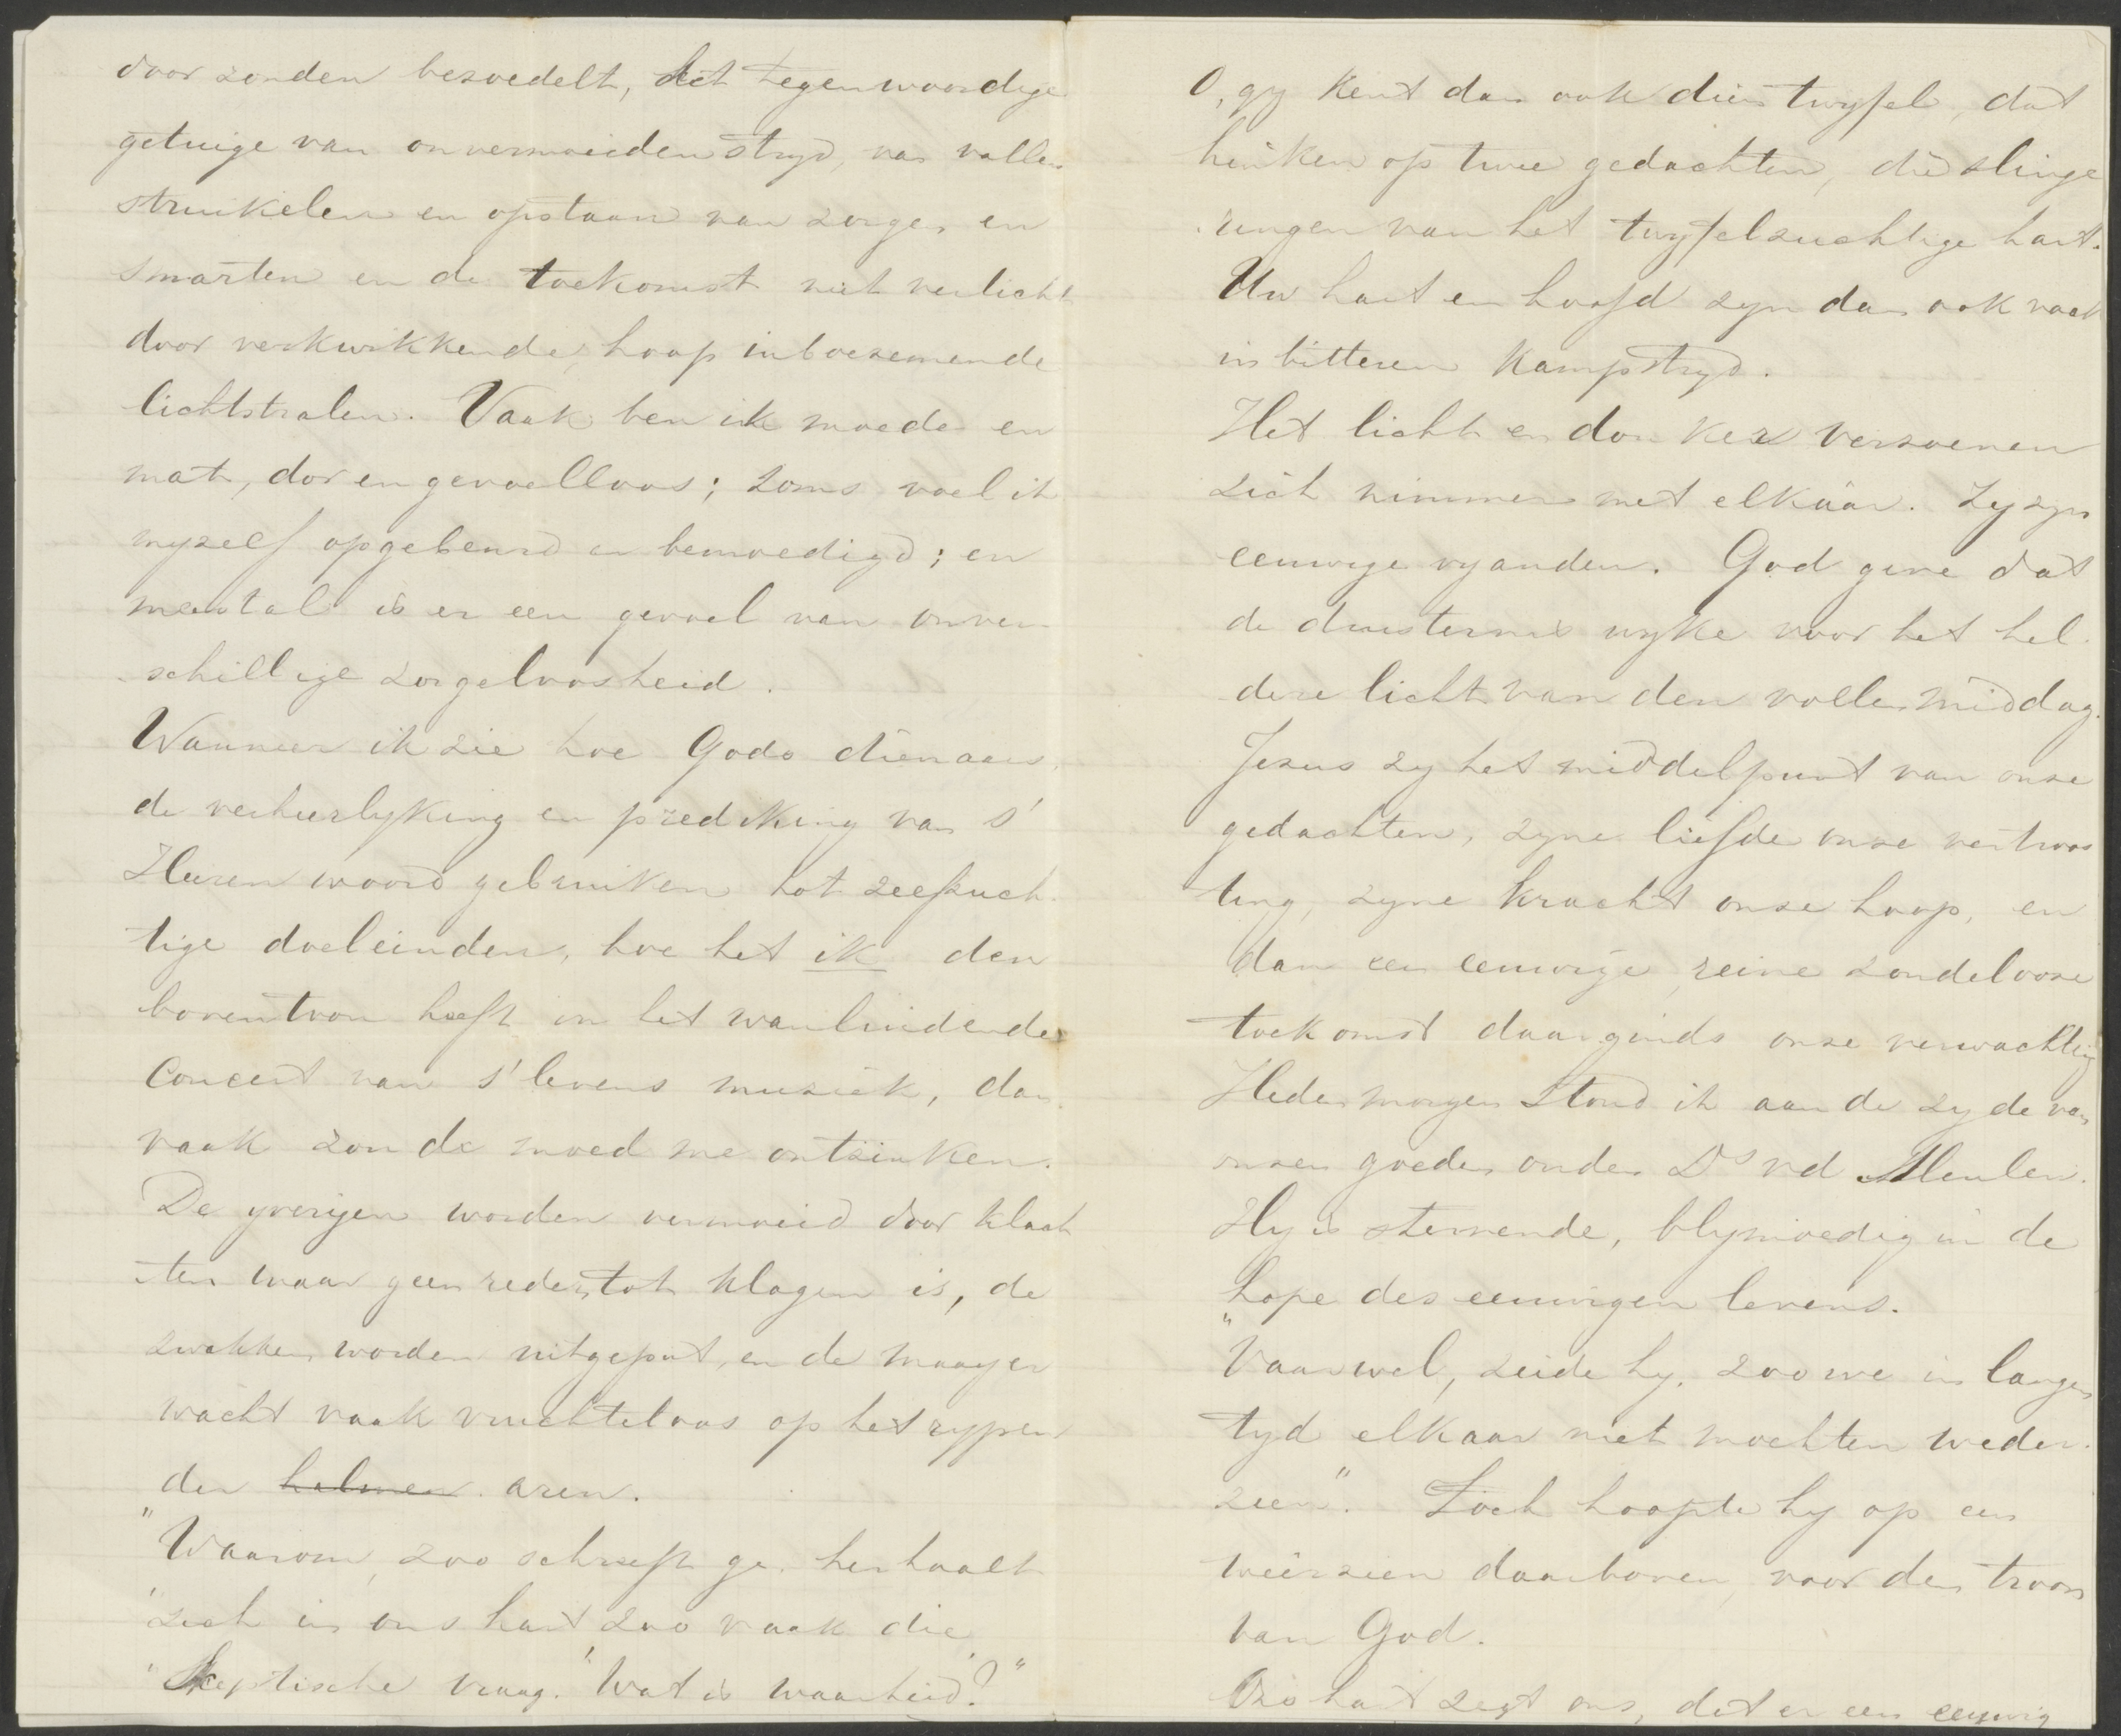 door zonden bezoedelt, het tegenwoordige
getuige van onvermoeiden stryd, van vallen
struikelen en opstaan van zorgen en
smarten en de toekomst niet verlicht
door verkwikkende, hoop inboezemende
lichtstralen. Vaak ben ik moede en
mat, dor en gevoelloos; soms voel ik
myzelf opgebeurd en bemoedigd; en
meestal is er een gevoel van onver-
schillige zorgeloosheid.
Wanneer ik zie hoe Gods dienaars,
de verheerlyking en prediking van s'
Heeren woord gebruiken tot zelfzuch-
tige doeleinden, hoe het ik den
boventoon heeft in het wanluidende
concert van s' levens muziek, dan
vaak zou de moed me ontzinken.
De yverigen worden vermoeid door klach
ten waar geen reden tot klagen is, de
zwakken worden uitgeput, en de maayer
wacht vaak vruchteloos op het rypen
der halmen aren.
"Waarom, zoo schreeft ge, herhaalt
"zich in ons hart zoo vaak die
"Skeptische vraag. "Wat is waarheid?"
O, gy kent dan ook dien twyfel, dat
hinken op twee gedachten, die slinge
ringen van het twyfelzuchtige hart.
Uw hart en hoofd zyn dan ook vaak
in bitteren kampstryd.
Het licht en donker verzoenen
zich nimmer met elkaar. Zy zyn
eeuwige vyanden. God geve dat
de duisternis wyke voor het hel-
dere licht van den vollen middag.
Jezus zy het middelpunt van onze
gedachten, zyne liefde onze vertroos
ting, zyne kracht onze hoop, en
dan een eeuwige, reine zondeloose
toekomst daarginds onze verwachting
Heden morgen stond ik aan de zyde van
onzen goeden ouden Ds vd Meulen.
Hy is stervende, blymoedig in de
hope des eeuwigen levens.
"Vaarwel, zeide hy, zoo we in langen
tyd elkaar niet mochten weder-
zien". Toch hoopte hy op een
weerzien daarboven, voor den troon
van God.
Ons hart zegt ons, dat er een eeuwig